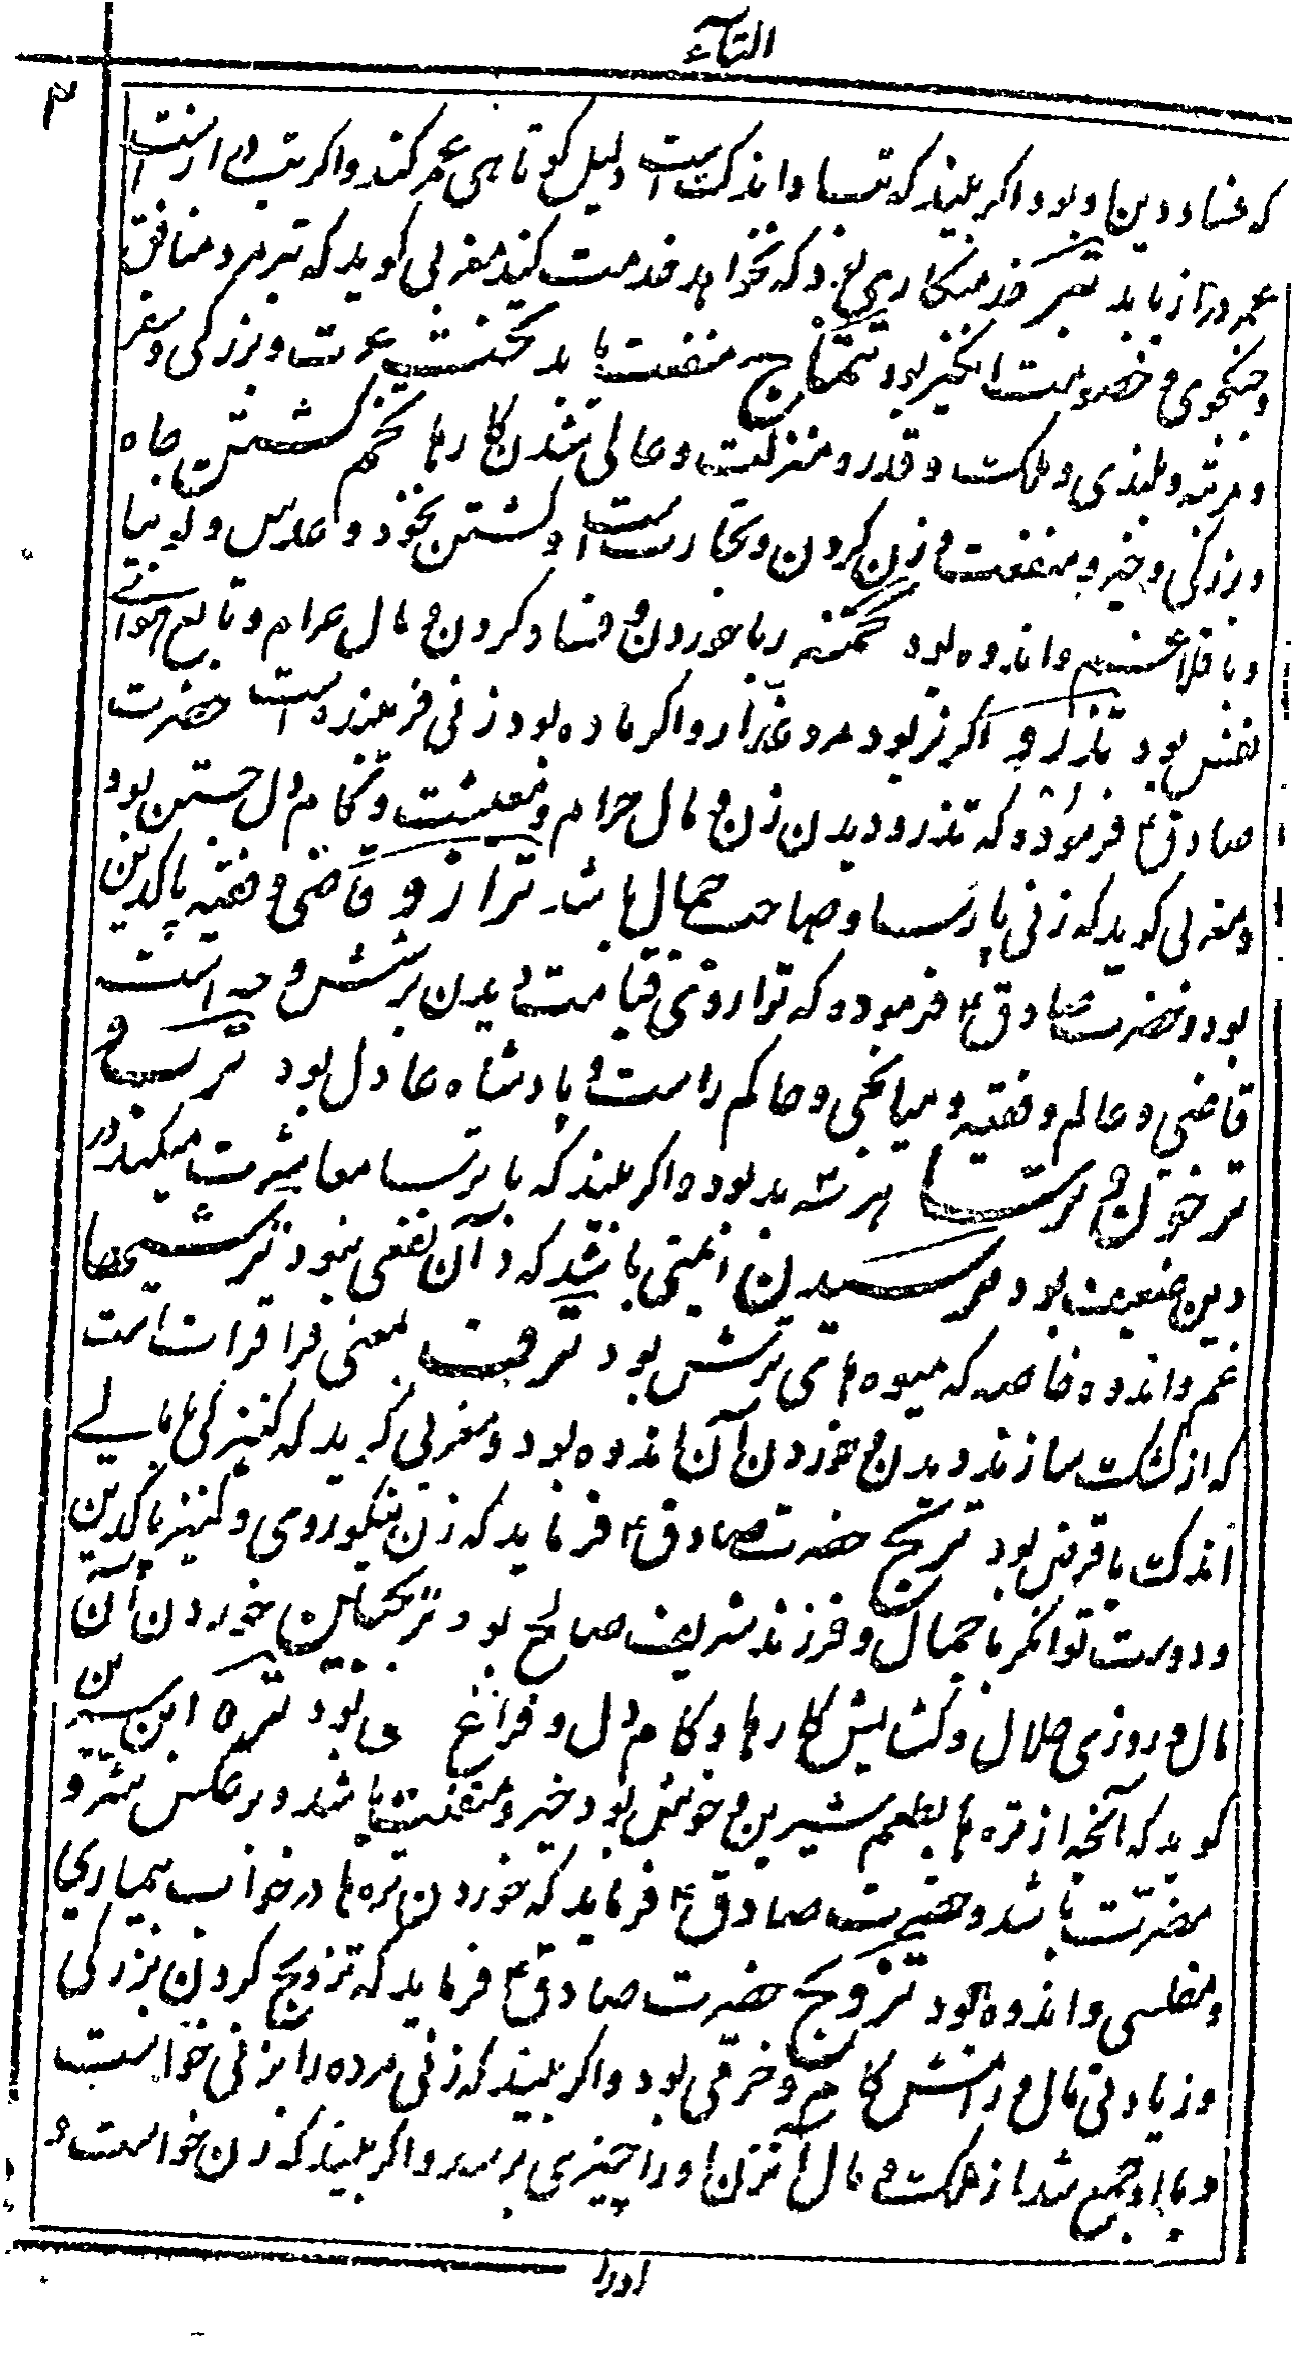 التآء
۳
که فساد دین او بود و اگر بیند که تب او اندکست دلیل کوتاهی عمر کند و اگر تب وی دراز است
عمر دراز یابد تبر خدمتکاری بود که نخواهد خدمت کند مغربی گوید که تبر مرد منافق
و جنگجوی و خصومت انگیز بود تتماج منفعت باید تخت عزت و بزرگی و سفر
و مرتبه و بلندی و ملکت و قدر و منزلت و عالی شدن کارها تخم کشتن جاه
و بزرگی و خیر و منفعت و زن کردن و تجارتست و کشتن نخود و عدس و لوبیا
و باقلا غم و اندوه بود تخمه ربا خوردن و فساد کردن و مال حرام و تابع هوای
نفس بود تذرو اگر نر بود مرد غدّار و اگر ماده بود زنی فریبنده است حضرت
صادق ع فرموده که تذرو دیدن زن و مال حرام و معیشت و کام دل جستن بود
و مغربی گوید که زنی پارسا و صاحب جمال باشد ترازو قاضی و فقیه پاکدین
بود و حضرت صادق ع فرموده که ترازوی قیامت دیدن بر شش وجه است
قاضی و عالم و فقیه و میانجی و حاکم راست و پادشاه عادل بود ترب و
ترخون و ترسا هر سه بد بود و اگر بیند که با ترسا معاشرت میکند در
دین ضعیف بود ترسیدن ایمنی باشد که در آن نفعی نبود ترشیها
غم و اندوه خاصه که میوه های ترش بود ترف بمعنی قراقرات است
که از کشک سازند دیدن و خوردن آن اندوه بود و مغربی گوید که کنیزکی یا مالی
اندک با قرض بود ترنج حضرت صادق ع فرماید که زن نیکوروی و کنیز پاکدین
و دوست توانگر با جمال و فرزند شریف صالح بود ترنجبین خوردن آن
مال و روزی حلال و گشایش کارها و کام دل و فراغ بود تره ابن سیرین
گوید که آنچه از تره ها بطعم شیرین و خوش بود خیر و منفعت باشد و بر عکس شر و
مضرت باشد و حضرت صادق ع فرماید که خوردن تره ها در خواب بیماری
و مفلسی و اندوه بود تزویج حضرت صادق ع فرماید که تزویج کردن بزرگی
و زیادتی مال و رامش کام و خرمی بود و اگر بیند که زنی مرده را بزنی خواست
و با او جمع شد از ملکت و مال آنزن او را چیزی برسد و اگر بیند که زن خواست و
اورا